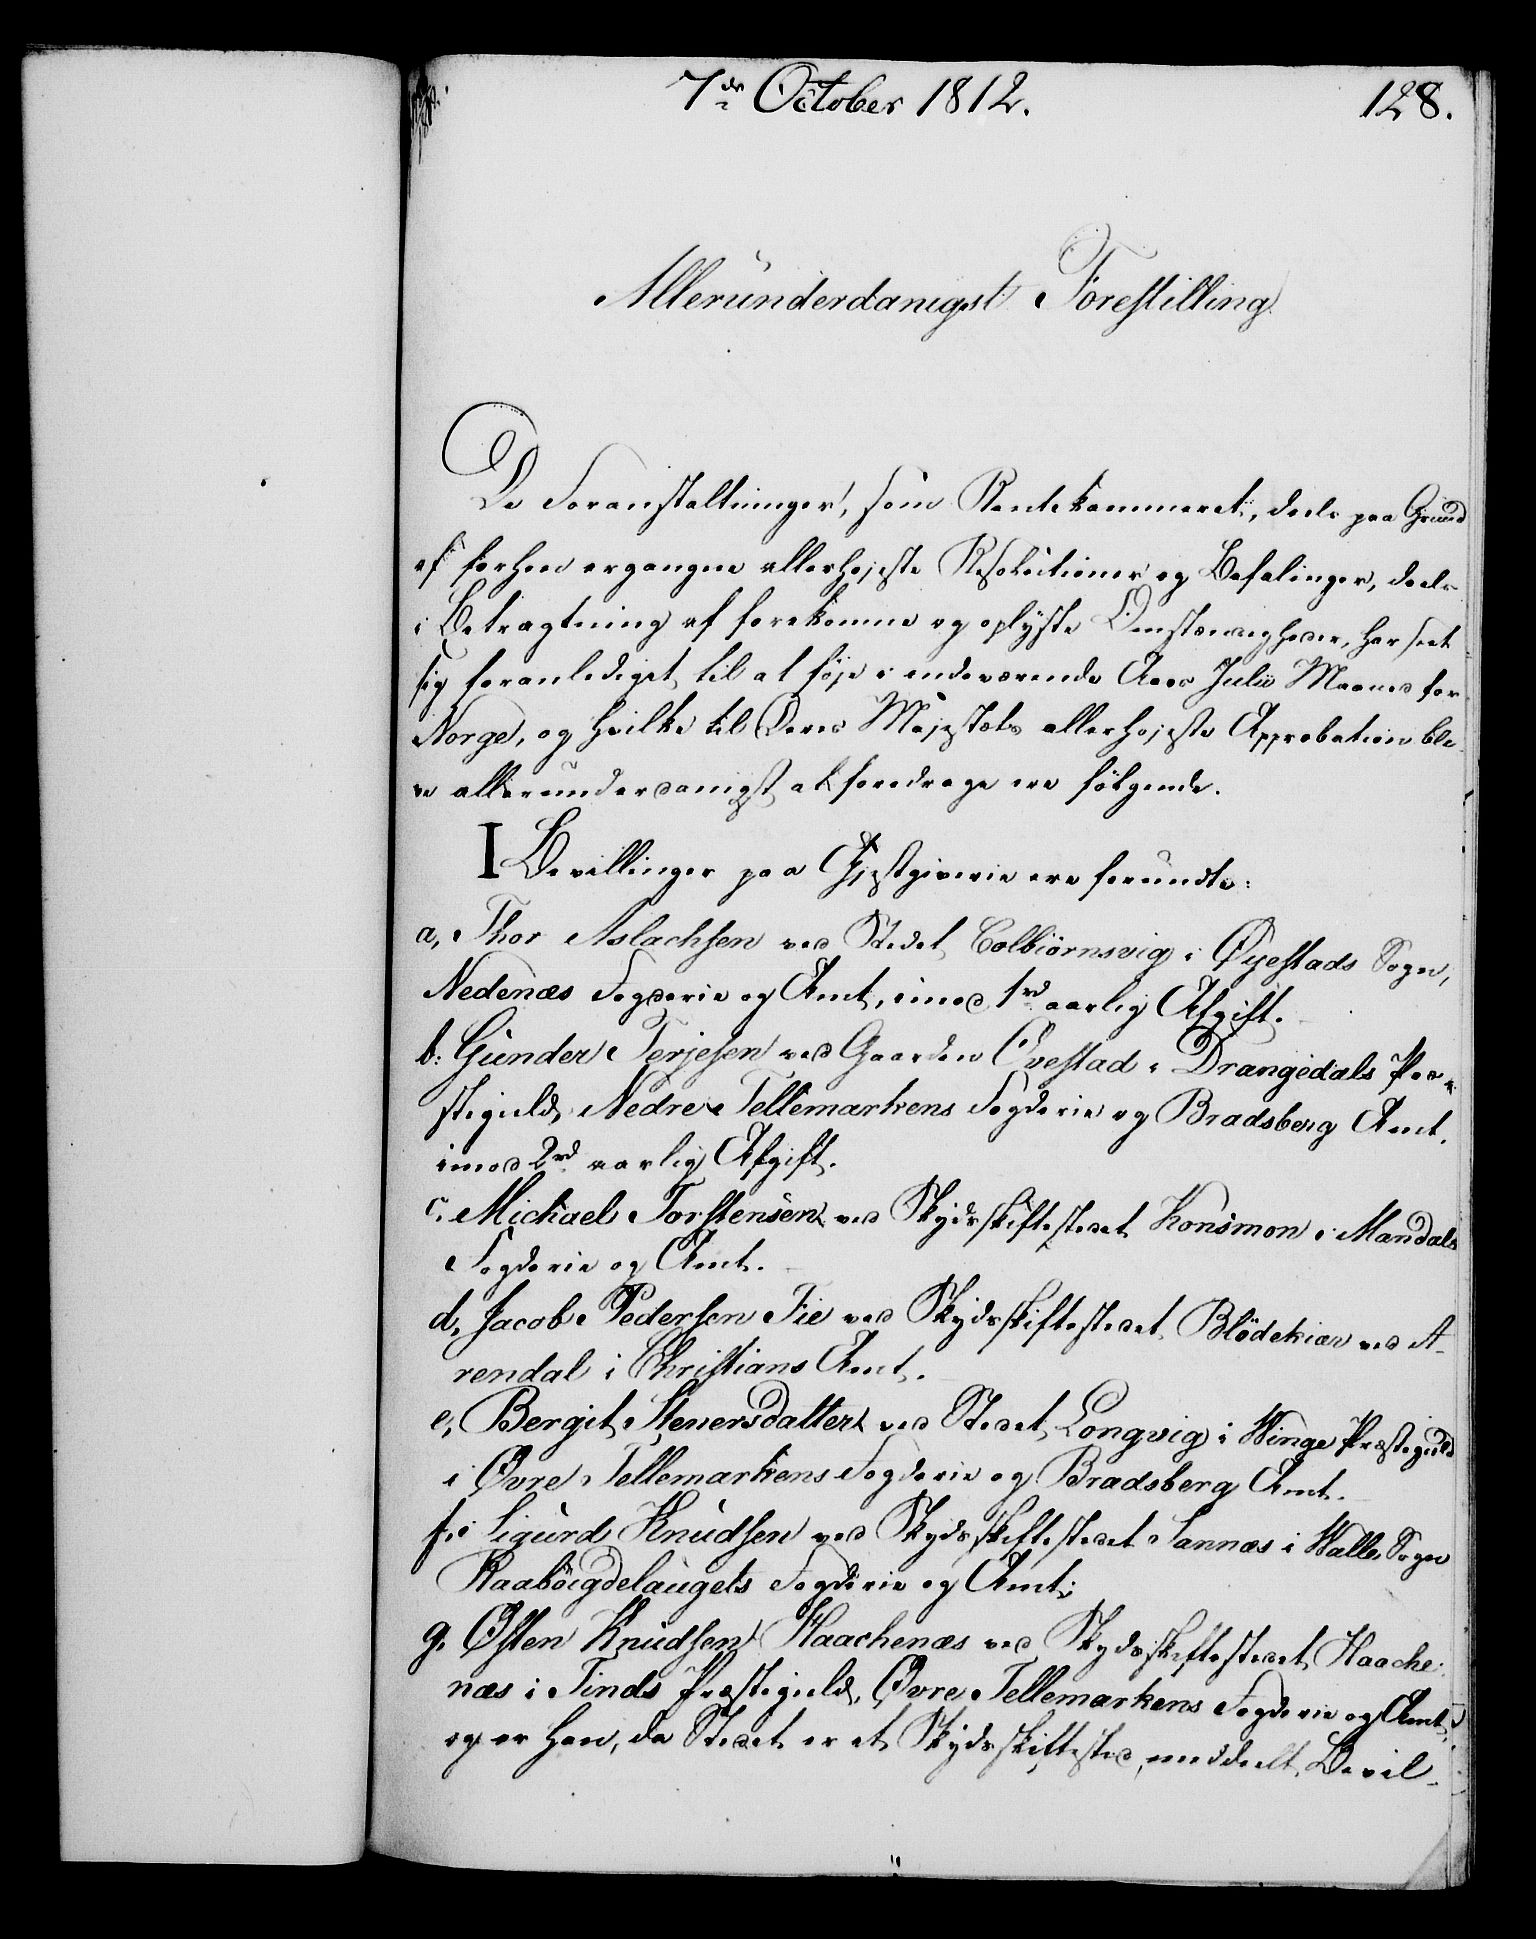 7de October 1812.
128.
Allerunderdanigst Forestilling
De Foranstaltninger, som Rentekammeret, deels paa Grund
af forhen ergangne allerhøjeste Resolutioner og Befalinger, deels
i Betragtning af forekomne og oplyste Omstændigheder, har seet
sig foranlediget til at føje i indeværende Aars Julii Maaned for
Norge, og hvilke til Deres Majestæts allerhøjeste Approbation ble-
ve allerunderdanigst at foredrage ere følgende.
I Bevillinger paa Gjestgiverie ere forundte:
a, Thor Aslachsen ved Stedet Colbiörnsvig i Øyestads Sogn,
Nedenæs Fogderie og Amt, imod 1rd aarlig Afgift.
b: Gunder Terjesen ved Gaarden Övestad i Drangedals Præ-
stegield, Nedre Tellemarkens Fogderie og Bradsberg Amt.
imod 2rd aarlig Afgift.
c. Michael Torstensen ved Skydsskiftestedet Konsmon i Mandals
Fogderie og Amt.
d, Jacob Pedersen Fie ved Skydsskiftestedet Blödekiær ved A-
rendal i Christians Amt.
e, Bergit Stenersdatter ved Stedet Longvig i Winge Præstegield
i Øvre Tellemarkens Fogderie og Bradsberg Amt.
f. Sigurd Knudsen ved Skydsskiftestedet Sannæs i Walle Sogn
Raabögdelaugets Fogderie og Amt;
g. Østen Knudsen Haachenæs ved Skydsskiftestedet Haache-
næs i Tinds Præstegield, Øvre Tellemarkens Fogderie og Amt,
og er han, da Stedet er et Skydsskiftested, meddeelt Bevil-